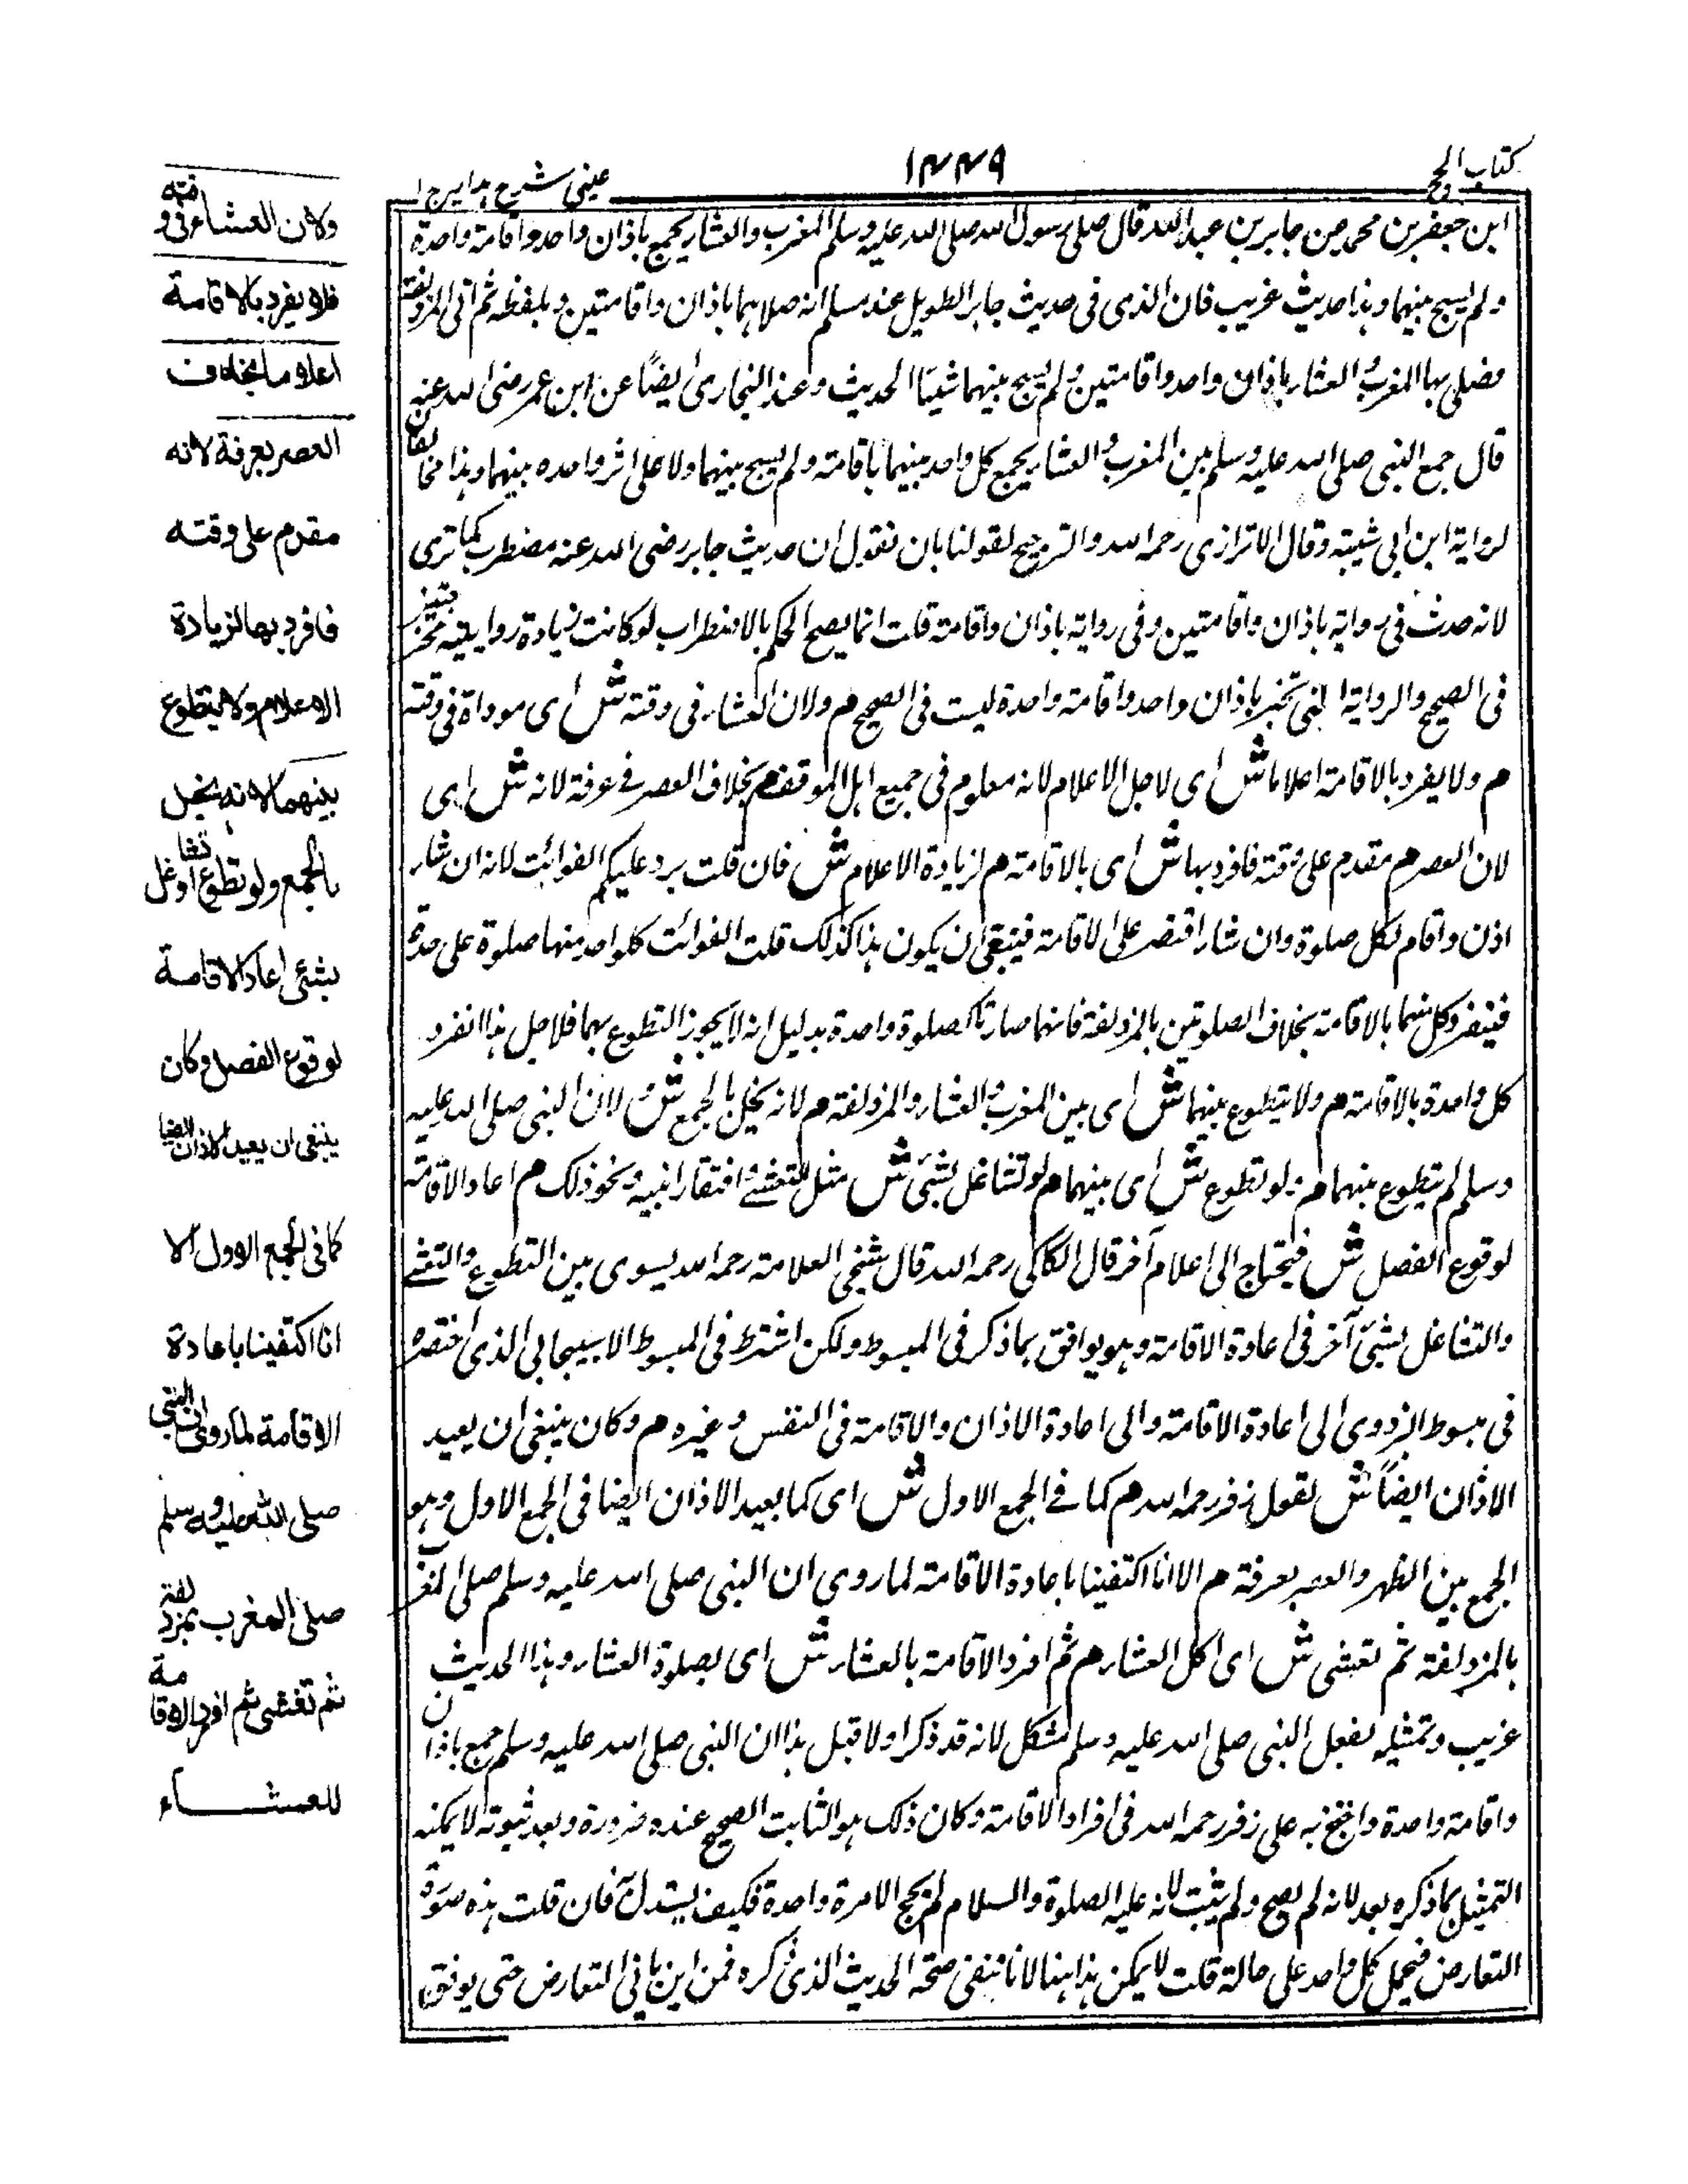 كتاب الحج
١٤٤٩
عينى شرح هدايه ج ١
ابن جعفر بن محمد عن جابر بن عبد الله قال صلى رسول الله صلى الله عليه وسلم المغرب والعشاء بجمع باذان واحد واقامة واحدة
ولم يسبح بينهما وهذا حديث غريب فان الذى فى حديث جابر الطويل عند مسلم انه صلاهما باذان واقامتين وبلفظه ثم اتى المزدلفة
فصلى بها المغرب والعشاء باذان واحد واقامتين ولم يسبح بينهما شيئا الحديث وعند البخارى ايضاً عن ابن عمر رضى الله عنه
قال جمع النبى صلى الله عليه وسلم بين المغرب والعشاء بجمع كل واحد بينهما باقامة ولم يسبح بينهما ولا على اثر واحده بينهما وهذا مخالفا
لرواية ابن ابى شيبته وقال الاترازى رحمه الله والترجيح لقولنا بان نقول ان حديث جابر رضى الله عنه مضطرب كما ترى
لانه حدث فى رواية باذان واقامتين وفى رواية باذان واقامة قلت انما يصح الحكم بالاضطراب لو كانت زيادة
فى الصحيح والرواية التى تخبر باذان واحد واقامة واحدة ليست فى الصحيح م ولان العشاء فى وقتة ش اى موداة فى وقته
م ولا يفرد بالاقامة اعلاما ش اى لاجل الاعلام لانه معلوم فى جميع اهل الموقف م بخلاف العصر فے عرفة لانه ش اى
لان العصر م مقدم على وقته فافرد بها ش اى بالاقامة م لزيادة الاعلام ش فان قلت يرد عليكم الفوائت لانه ان شاء
اذن واقام لكل صلوة وان شاء اقتصر على الاقامة فينبغى ان يكون هذا كذلك قلت الفوائت كلواحد منها صلوة على حدة
فينفرد كل منهما بالاقامة بخلاف الصلوتين بالمزدلفة فانهما صارتا كصلوة واحدة بدليل انه لا يجوز التطوع بهما فلاجل هذا انفرد
كل واحدة بالاقامة م ولا يتطوع بينهما ش اى بين المغرب والعشاء والمزدلفة م لانه يخل بالجمع ش ولان النبى صلى الله عليه
وسلم لم يتطوع بينهما م ولو تطوع ش اى بينهما م او تشاغل بشئ ش مثل التعشے و نحو ذلك م اعاد الاقامة
لوقوع الفصل ش فيحتاج الى اعلام آخر قال الكاكى رحمه الله قال شيخى العلامة رحمه الله يسوى بين التطوع والتعشے
والتشاغل بشئ آخر فى اعادة الاقامة وهو يوافق بما ذكر فى المبسوط ولكن اشترط فى المبسوط الاسبيجابى الذى اختصره
فى مبسوط البزدوى الى اعادة الاقامة والى اعادة الاذان والاقامة فى النفس وغيره م وكان ينبغى ان يعيد
الاذان ايضاً ش لقول زفر رحمه الله م كما فے الجمع الاول ش اى كما يعيد الاذان ايضا فى الجمع الاول وهو
الجمع بين الظهر والعصر بعرفة م الا انا اكتفينا باعادة الاقامة لما روى ان النبى صلى الله عليه وسلم صلى المغرب
بالمزدلفة ثم تعشى ش اى اكل العشاء م ثم افرد الاقامة بالعشاء ش اى بصلوة العشاء وهذا الحديث
غريب وتمثيله بفعل النبى صلى الله عليه وسلم مشكل لانه قد ذكر اولا قبل هذا ان النبى صلى الله عليه وسلم جمع باذان
واقامة واحدة واحتج به على زفر رحمه الله فى افراد الاقامة وكان ذلك هو الثابت الصحيح عنده ضرورة وبعد ثبوته لا يمكنه
التمثيل بما ذكره بعد لانه لم يصح ولم يثبت لانه عليه الصلوة والسلام لم يحج الا مرة واحدة فكيف يستدل به فان قلت هذه صورة
التعارض فيحمل كل واحد على حالة قلت لا يمكن هذا هنا لانا ننفى صحة الحديث الذى ذكره فمن اين ياتى التعارض حتى يوفق
ولان العشاء فى وقته
فلا يفرد بالاقامة
اعلاما بخلاف
العصر بعرفة لانه
مقدم على وقته
فافرد بها لزيادة
الاعلام ولا يتطوع
بينهما لانه يخل
بالجمع ولو تطوع او تشاغل
بشئ اعاد الاقامة
لوقوع الفصل وكان
ينبغى ان يعيد الاذان ايضا
كما فى الجمع الاول الا
انا اكتفينا باعادة
الاقامة لما روى ان النبى
صلى الله عليه وسلم
صلى المغرب بمزدلفة
ثم تعشى ثم افرد الاقامة
للعشاء